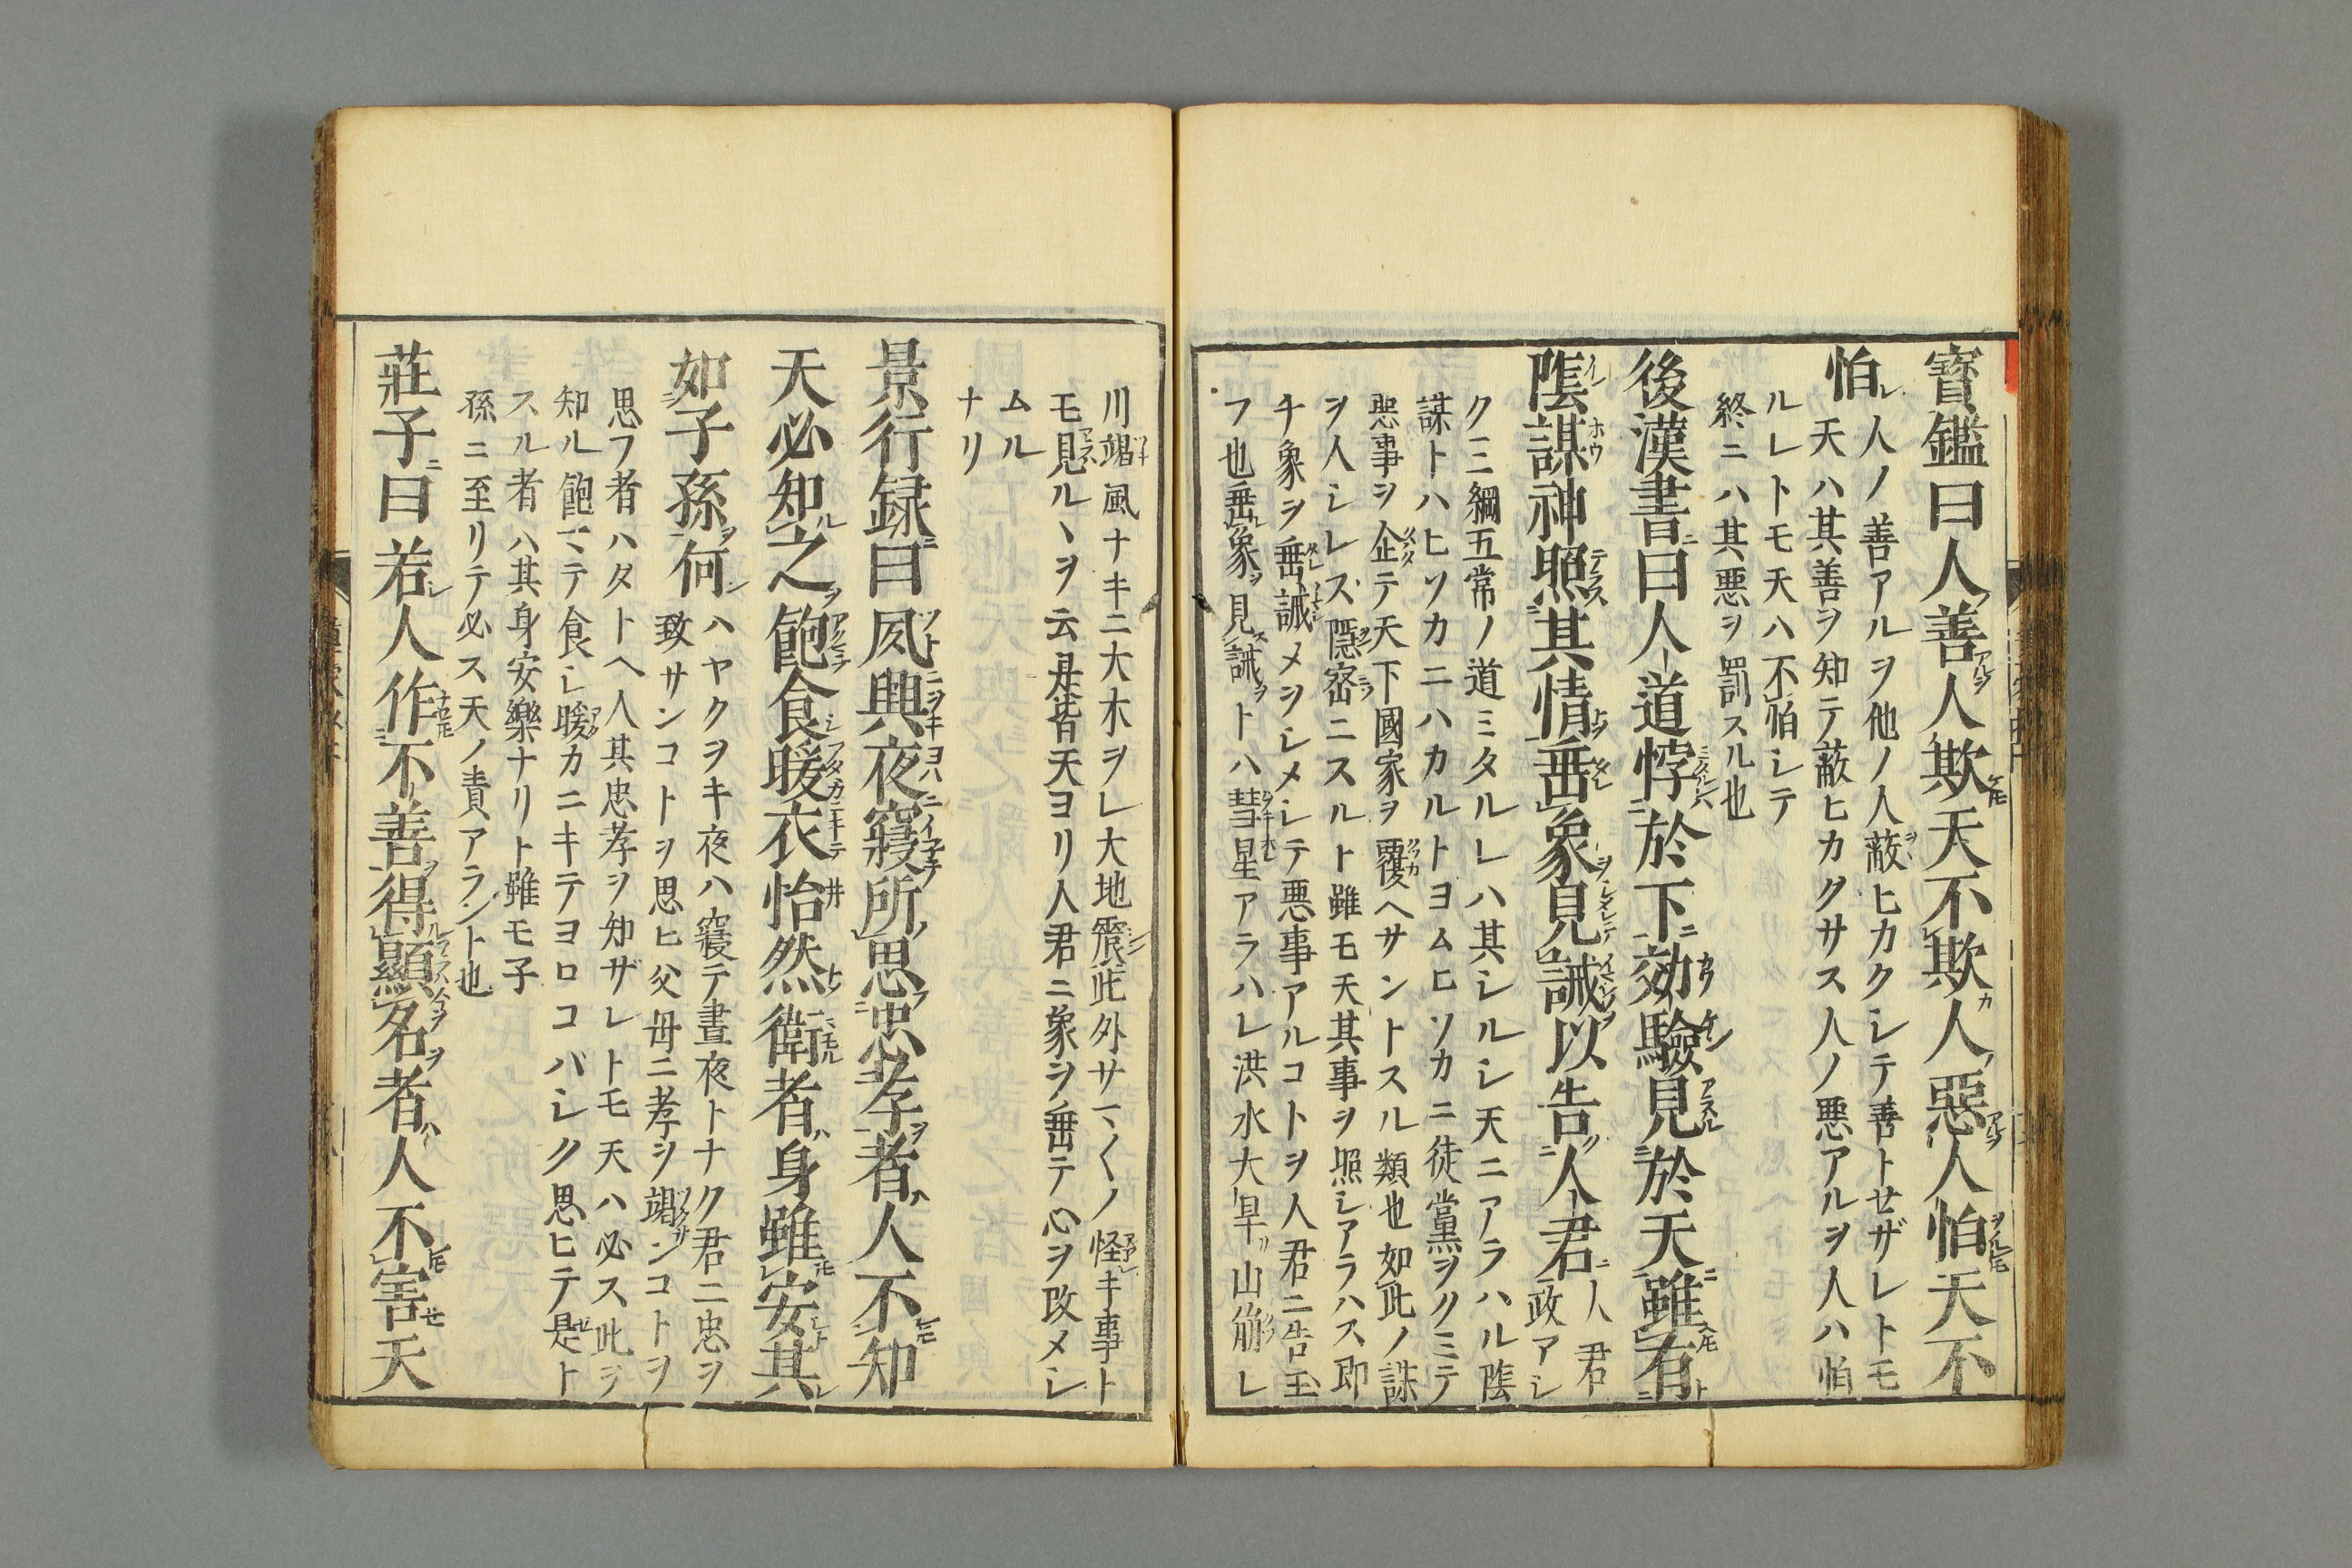 寳鑑曰人善人欺天不欺人惡人怕天不
怕
人ノ善アルヲ他ノ人蔽ヒカクシテ善トセザレトモ
天ハ其善ヲ知テ蔽ヒカクサス人ノ悪アルヲ人ハ怕
ルレトモ天ハ不怕シテ
終ニハ其悪ヲ罰スル也
後漢書曰人道悖於下効驗見於天雖有
隂謀神照其情垂象見誡以告人君
人君
政アシ
ク三綱五常ノ道ミタルレハ其シルシ天ニアラハル隂
謀トハヒソカニハカルトヨムヒソカニ徒黨ヲクミテ
悪事ヲ企テ天下國家ヲ覆ヘサントスル類也如此ノ謀
ヲ人シレス隠宻ニスルト雖モ天其事ヲ照シアラハス即
チ象ヲ垂誡メヲシメシテ悪事アルコトヲ人君ニ告玉
フ也垂象見誡トハ彗星アラハレ洪水大旱山崩レ
川竭風ナキニ大木ヲレ大地震此外サマ〱ノ怪キ事ト
モ見ルヽヲ云是皆天ヨリ人君ニ象ヲ垂テ心ヲ改メシ
ムル
ナリ
景行録曰夙興夜寝所思忠孝者人不知
天必知之飽食暖衣怡然衛者身雖安其
如子孫何
ハヤクヲキ夜ハ寝テ晝夜トナク君ニ忠ヲ
致サンコトヲ思ヒ父母ニ孝ヲ竭サンコトヲ
思フ者ハタトヘ人其忠孝ヲ知ザレトモ天ハ必ス此ヲ
知ル飽マテ食シ暖カニキテヨロコバシク思ヒテ是ト
スル者ハ其身安樂ナリト雖モ子
孫ニ至リテ必ス天ノ責アラント也
莊子曰若人作不善得顯名者人不害天